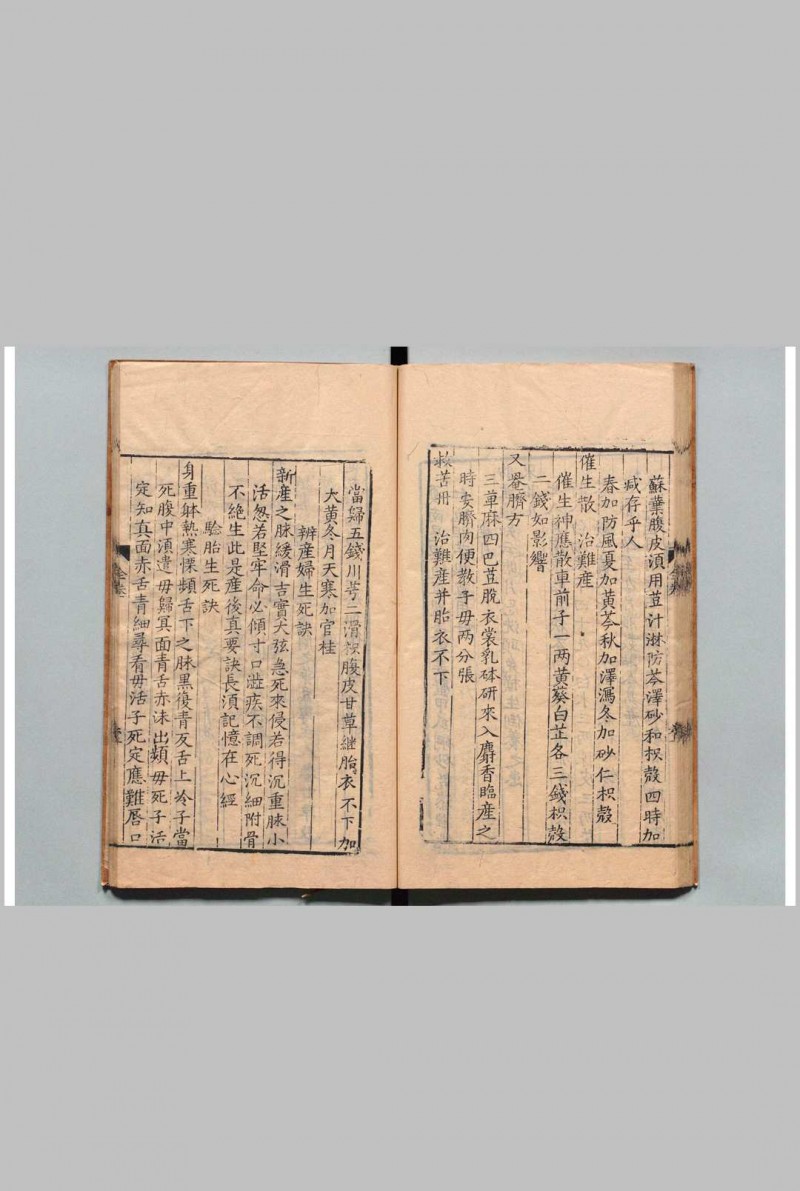 蘇葉腹皮湏用荳汁淋防芩澤砂和枳殼四時加
减存乎人
春加防風夏加黃芩秋加澤瀉冬加砂仁枳殼
催生散　治難産
催生神應散車前子一兩黃葵白芷各三錢枳殼
二錢如影響
又罨臍方
三萆麻四巴荳脫衣裳乳砵研來入麝香臨産之
時安臍肉便教子毋兩分張
救苦丹　治難産并胎衣不下
當歸五錢川芎二滑腹皮甘草継胎衣不下加
大黃冬月天寒加官桂
辨産婦生死訣
新産之脉緩滑吉實大弦急死來侵若得沉重脉小
活怱若堅牢命必傾寸口澁疾不調死沉細附骨
不絶生此是産後真要訣長湏記憶在心經
驗胎生死訣
身重躰熱寒慄頻舌下之脉黑復青反舌上冷子當
死腹中湏遣毋歸冥面青舌赤沫出頻毋死子活
定知真面赤舌青細尋看毋活子死定應難唇口